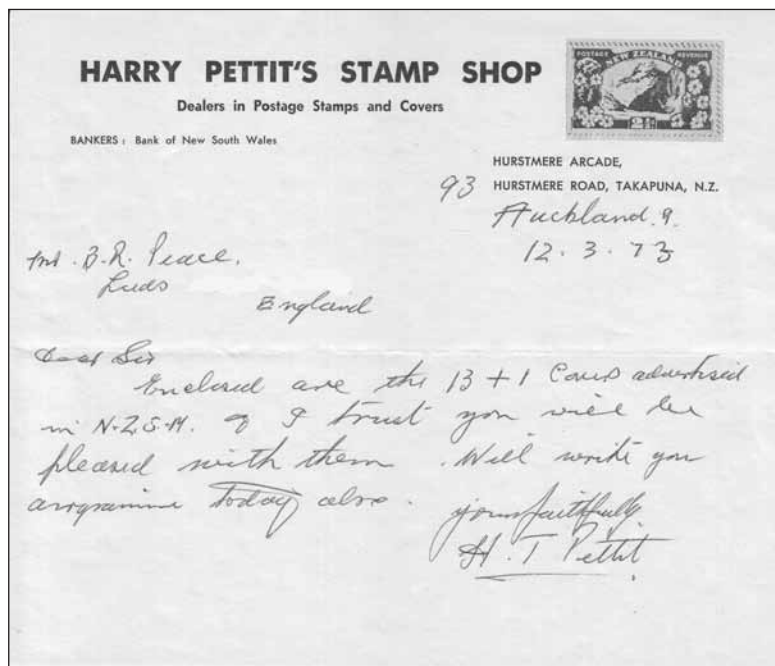 HARRY PETTIT'S STAMP SHOP
Dealers in Postage Stamps and Covers
BANKERS: Bank of New South Wales
POSTAGE REVENUE
NEW ZEALAND
2½D
HURSTMERE ARCADE,
93 HURSTMERE ROAD, TAKAPUNA, N.Z.
Auckland. 9.
12. 3. 73
Mr. B.R. Peace,
Leeds
England
Dear Sir
Enclosed are the 13 + 1 Covers advertised
in N.Z.S.M. & I trust you will be
pleased with them. Will write you
today also.
yours faithfully
H. T Pettit